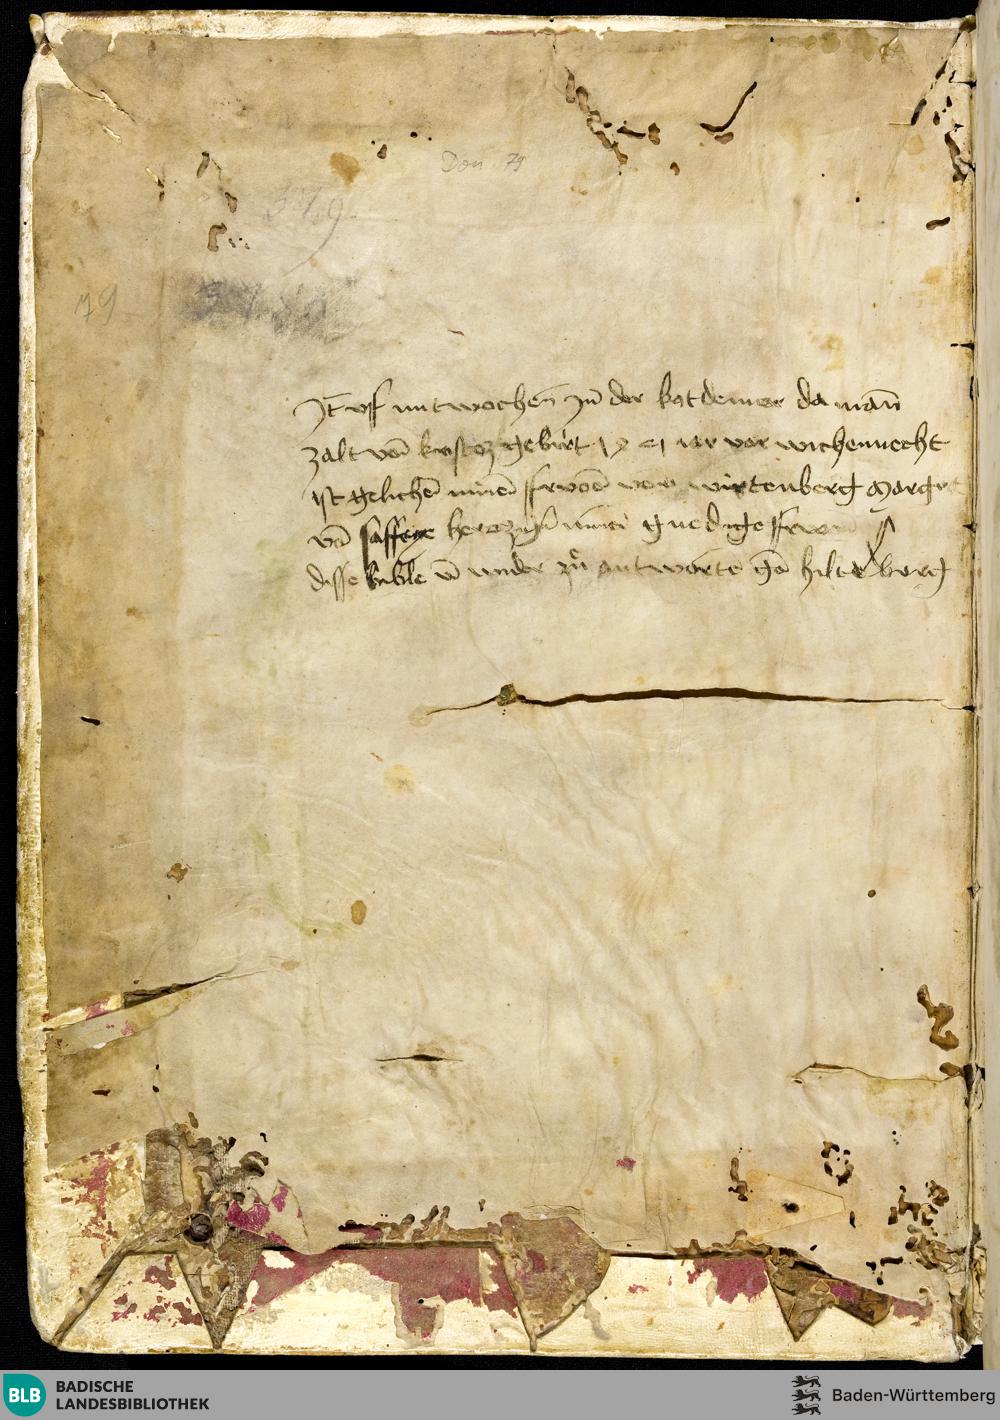 Don 79
79
It uff mitwochen zů der kotdemer da man
zalt von kristoz gebúrt jar vor wichennecht
ist gelichen minen frwoen von wirtenberg Margret
von saffeye herczogin miner gnedige frwen
disse bible un wider zů antworte gen hiltzberg
BLB BADISCHE
LANDESBIBLIOTHEK
Baden-Württemberg